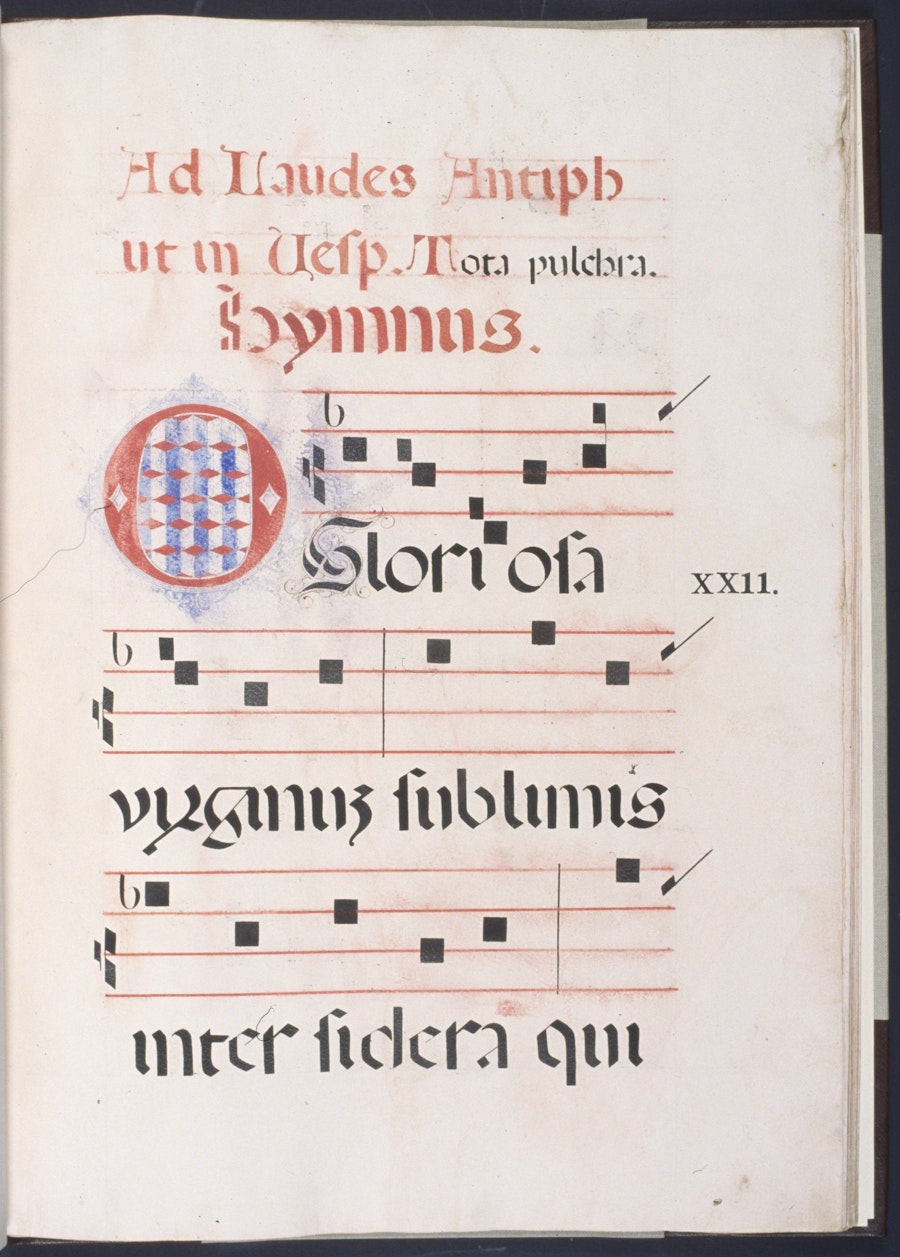 Ad Laudes Antiph
ut in Vesp. Tota pulchra.
Hymnus.
O Gloriosa
XXII.
virginuz sublimis
inter sidera qui